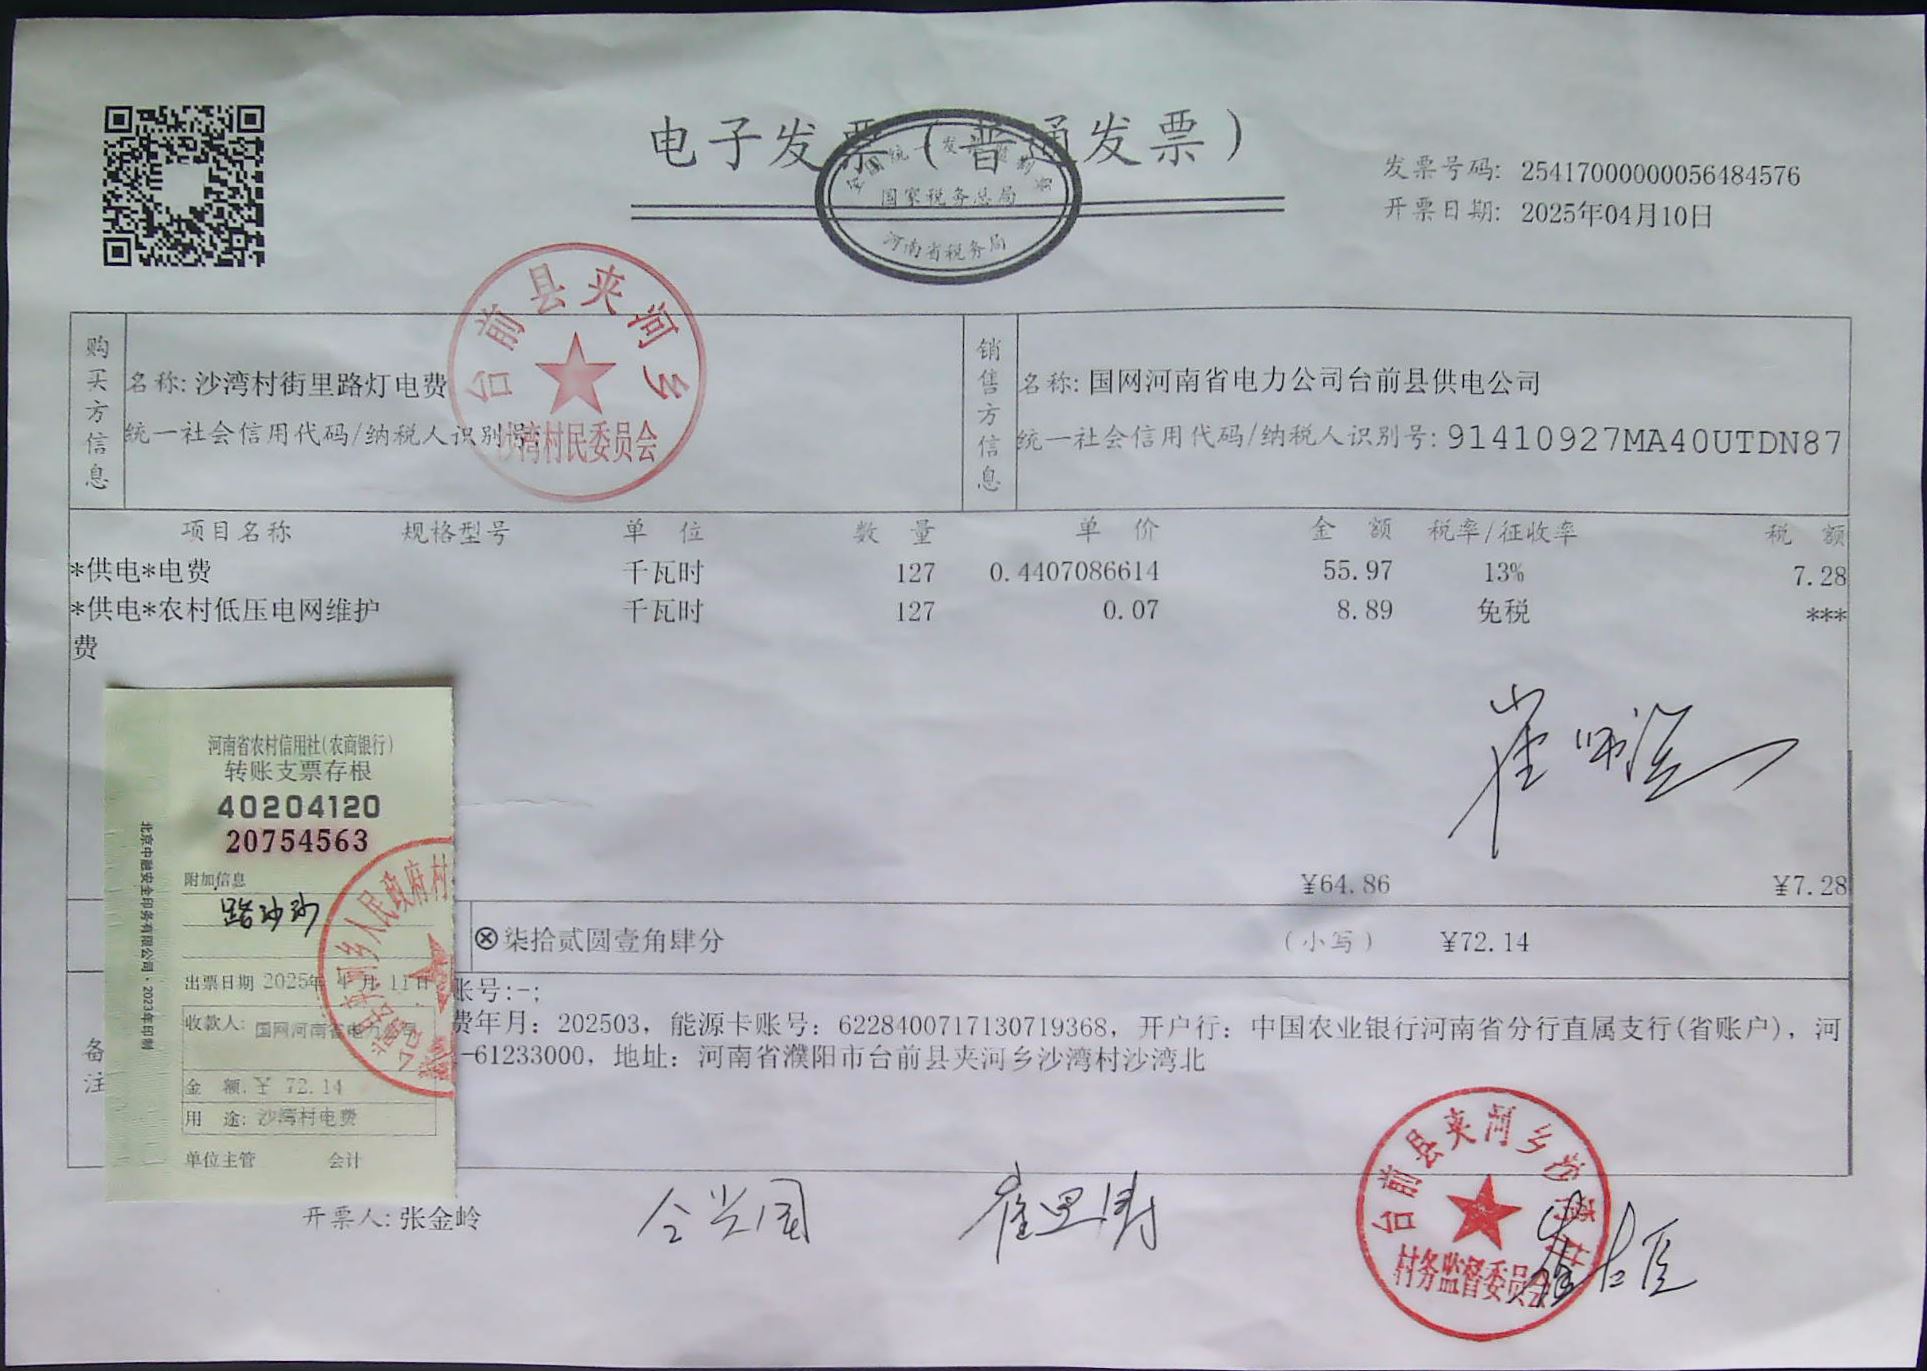 电子发票（普通发票）
全国统一发票监制章
国家税务总局
河南省税务局
发票号码: 25417000000056484576
开票日期: 2025年04月10日
购买方信息
名称: 沙湾村街里路灯电费
统一社会信用代码/纳税人识别号
台前县夹河乡
沙湾村民委员会
销售方信息
名称: 国网河南省电力公司台前县供电公司
统一社会信用代码/纳税人识别号: 91410927MA40UTDN87
项目名称 规格型号 单 位 数 量 单 价 金 额 税率/征收率 税 额
*供电*电费 千瓦时 127 0.4407086614 55.97 13% 7.28
*供电*农村低压电网维护 千瓦时 127 0.07 8.89 免税 ***
费
¥64.86 ¥7.28
⊗柒拾贰圆壹角肆分 （小写） ¥72.14
备注
账号:-;
费年月: 202503, 能源卡账号: 6228400717130719368, 开户行: 中国农业银行河南省分行直属支行(省账户), 河
-61233000, 地址: 河南省濮阳市台前县夹河乡沙湾村沙湾北
河南省农村信用社(农商银行)
转账支票存根
40204120
20754563
附加信息
出票日期 2025年 4 月 11日
收款人: 国网河南省电力公司
金 额: ¥ 72.14
用 途: 沙湾村电费
单位主管 会计
北京中融安全印务有限公司·2023年印制
乡人民政府村
开票人: 张金岭
仝兴国
台前县夹河乡沙湾村
村务监督委员会